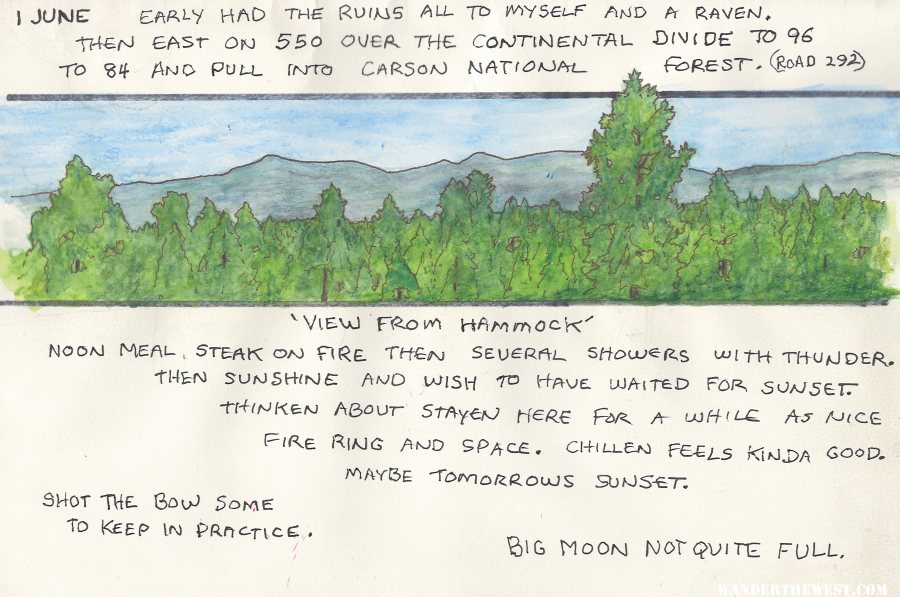 1 JUNE EARLY HAD THE RUINS ALL TO MYSELF AND A RAVEN.
THEN EAST ON 550 OVER THE CONTINENTAL DIVIDE TO 96
TO 84 AND PULL INTO CARSON NATIONAL FOREST. (ROAD 292)
'VIEW FROM HAMMOCK'
NOON MEAL STEAK ON FIRE THEN SEVERAL SHOWERS WITH THUNDER.
THEN SUNSHINE AND WISH TO HAVE WAITED FOR SUNSET.
THINKEN ABOUT STAYEN HERE FOR A WHILE AS NICE
FIRE RING AND SPACE. CHILLEN FEELS KINDA GOOD.
MAYBE TOMORROWS SUNSET.
SHOT THE BOW SOME
TO KEEP IN PRACTICE.
BIG MOON NOT QUITE FULL.
WANDERTHEWEST.COM